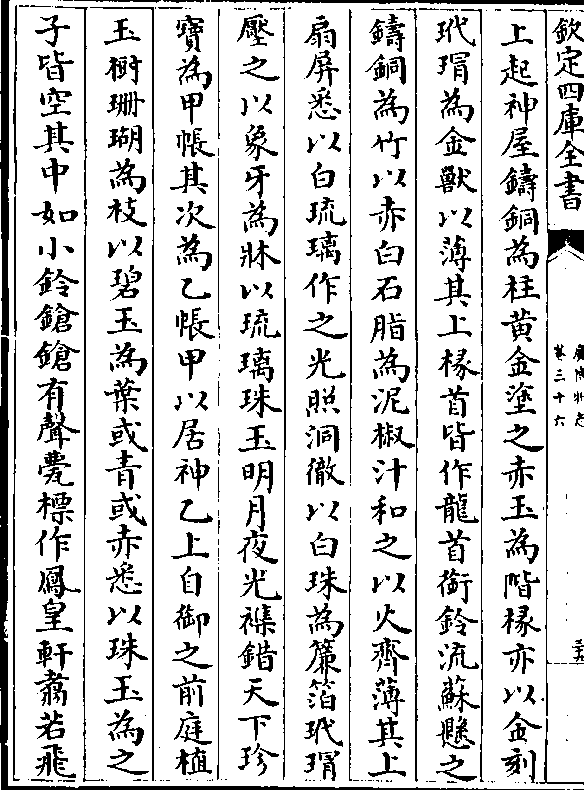 欽定四庫全書
廣博物志
卷三十六
上起神屋鑄銅為柱黄金塗之赤玉為階椽亦以金刻
玳瑁為金獸以薄其上椽首皆作龍首銜鈴流蘇懸之
鑄銅為竹以赤白石脂為泥椒汁和之以火齊薄其上
扇屏悉以白琉璃作之光照洞徹以白珠為簾箔玳瑁
壓之以象牙為牀以琉璃珠玉明月夜光襍錯天下珍
寶為甲帳其次為乙帳甲以居神乙上自御之前庭植
玉樹珊瑚為枝以碧玉為葉或青或赤悉以珠玉為之
子皆空其中如小鈴鎗鎗有聲甍標作鳳皇軒翥若飛